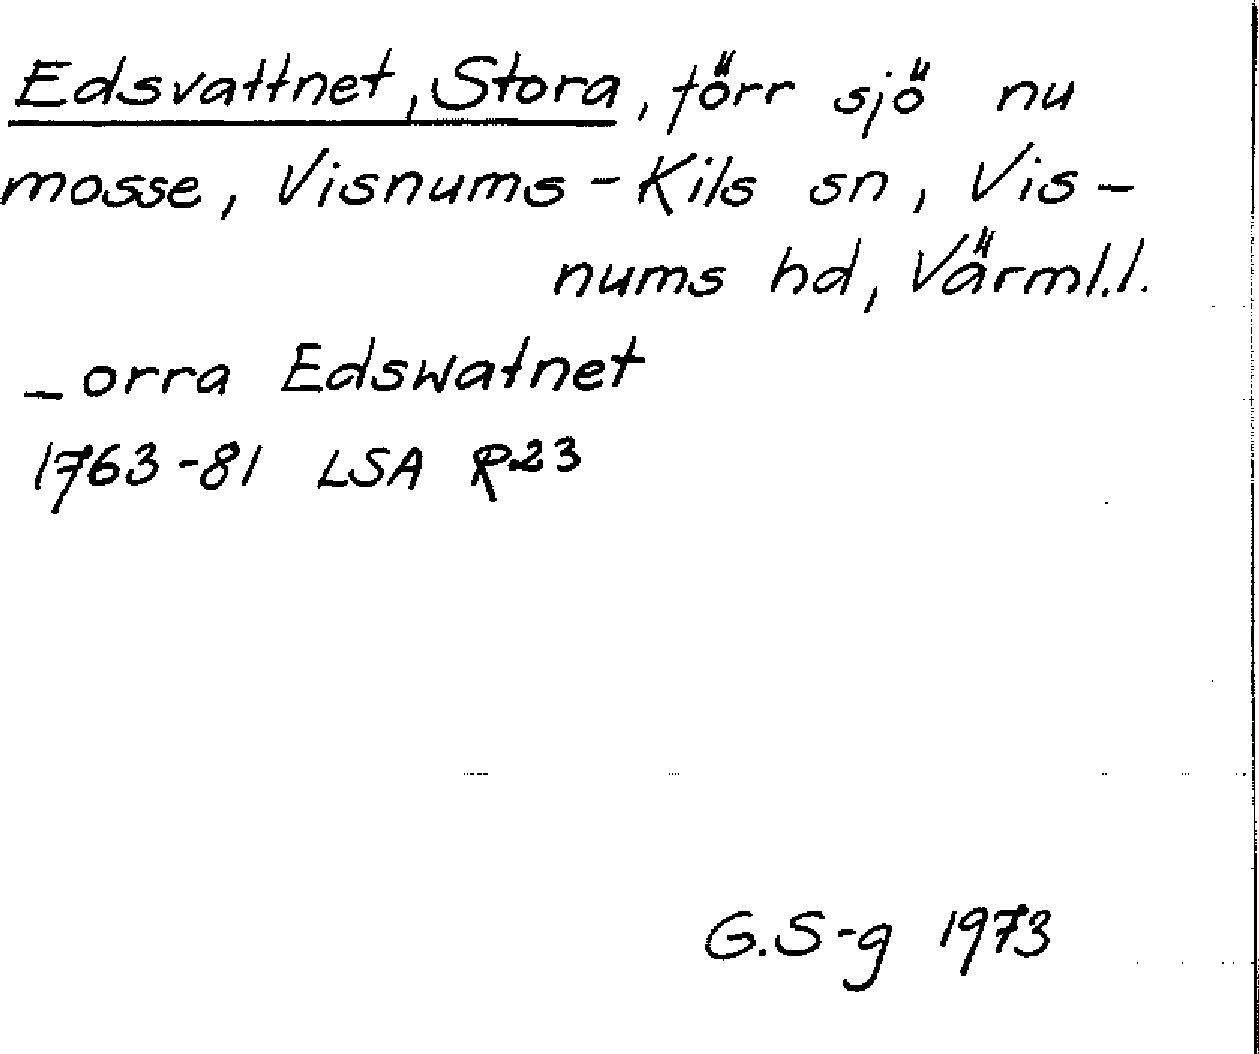 Edsvattnet, Stora, förr sjö nu
mosse, Visnums-Kils sn, Vis-
nums hd, Värml.l.
_orra Edswatnet
1763-81 LSA R23
G.S-g 1973